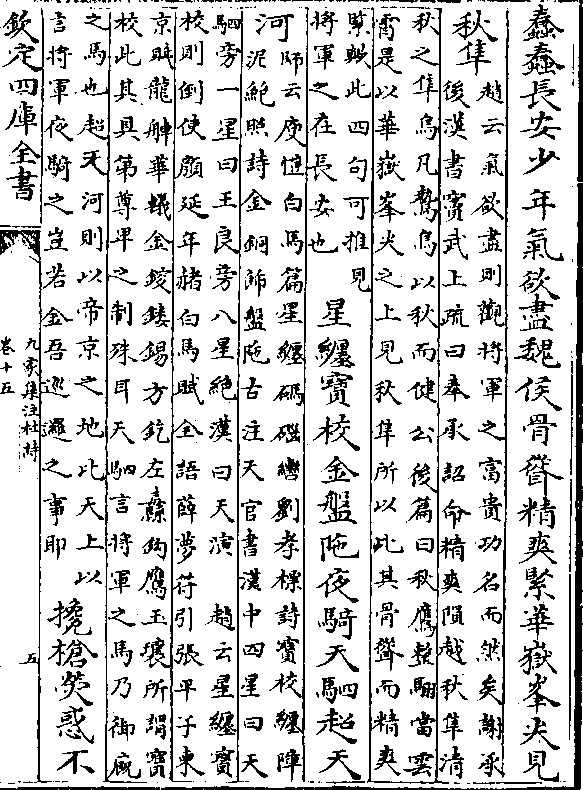 蠢蠢長安少年氣欲盡魏侯骨聳精爽緊華嶽峯尖見
秋隼
趙云氣欲盡則觀將軍之富貴功名而然矣謝承
後漢書竇武上疏曰奉承詔命精爽隕越秋隼清
秋之隼鳥凡鷙鳥以秋而健公後篇曰秋鷹整翮當雲
霄是以華嶽峯尖之上見秋隼所以比其骨聳而精爽
緊歟此四句可推見
將軍之在長安也
星纏寶校金盤陁夜騎天駟超天
河
師云庾愷白馬篇星纏碼磂轡劉孝標詩寶校纏陣
泥鮑照詩金銅飾盤陁古注天官書漢中四星曰天
駟旁一星曰王良旁八星絶漢曰天潢
趙云星纏寶
校則倒使顔延年赭白馬賦全語薛夢符引張平子東
京賦龍輈華轙金鋄鏤鍚方釳左纛鉤膺玉瓖所謂寶
校此其具第尊卑之制殊耳天駟言將軍之馬乃御廐
之馬也超天河則以帝京之地比天上以
言將軍夜騎之豈若金吾巡邏之事耶
攙槍熒惑不
欽定四庫全書
九家集注杜詩
卷十五
五